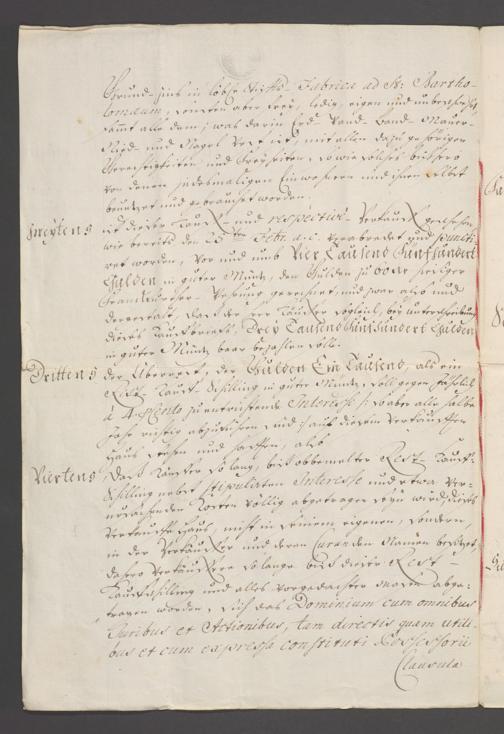 Grund-Zinß in löbse Stiffts-Fabrica ad St: Bartho-
lomæum, sonsten aber frey, ledig, eigen und unbeschwehrt,
samt alle dem, was darin Erd- Wand- Band- Mauer-
Nied- und Nagel Vest ist, mit allen dazu gehörigen
Gerechtigkeiten und Freyheiten, so wie solches bißhero
von denen jedesmaligen Einwohnern und ihnen selbst
benutzt und gebraucht worden.
Zweytens ist dieser Kauff- und respective Verkauff geschehen,
wie bereits den 23ten Febr. a. c. verabredet und puncti-
ret worden, vor und umb Vier Tausend Fünfhundert
Gulden in guter Müntz, den Gulden zu 60 xr hiesiger
Franckfurther Wehrung gerechnet, und zwar also und
dergestalt, daß der Herr Käuffer sogleich, bey Unterschreibung
dieses Kauffbriefs, Drey Tausend Fünfhundert Gulden
in guter Müntz baar bezahlen solle.
Drittens Der Überrest, der Gulden Ein Tausend, als ein
Rest- Kauff-Schilling in guter Müntz, soll gegen jährlich
à 4 pCento zu entrichtende Interesse /: wovon alle halbe
Jahr richtig abzuführen und :/ auf diesem verkaufften
Hauß stehen und hafften, also
Viertens daß Käuffer so lang, biß obbemelter Rest Kauff-
Schilling nebst stipulirten Interesse und etwa ver-
ursachenden Kosten völlig abgetragen seyn wird, dieses
verkauffte Hauß, nicht in seinem eigenen, sondern,
in der Verkäuffer und deren Curanden Namen besitzet,
dahero Verkäuffere so lange biß dieser Rest-
Kauffschilling und alles vorgedachter maßen abge-
tragen worden, sich das Dominium cum omnibus
Juribus et Actionibus, tam directis quam utili-
bus et cum expressa constituti Possessorii
Clausula